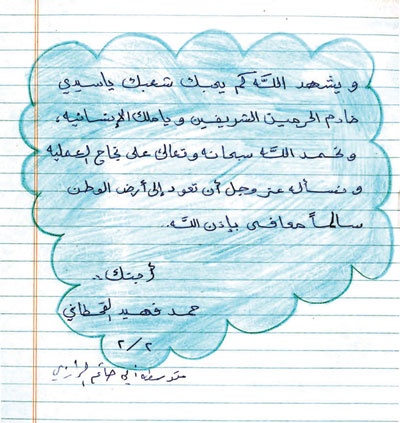 ويشهد اللّه كم يحبك شعبك ياسيدي
خادم الحرمين الشريفين وياملك الإنسانية،
ونحمد اللّه سبحانه وتعالى على نجاح العملية
ونسأله عز وجل أن تعود إلى أرض الوطن
سالماً معافى بإذن اللّه..
حمد فهيد القحطاني
٢/٢
متوسطة أبي حاتم الرازي